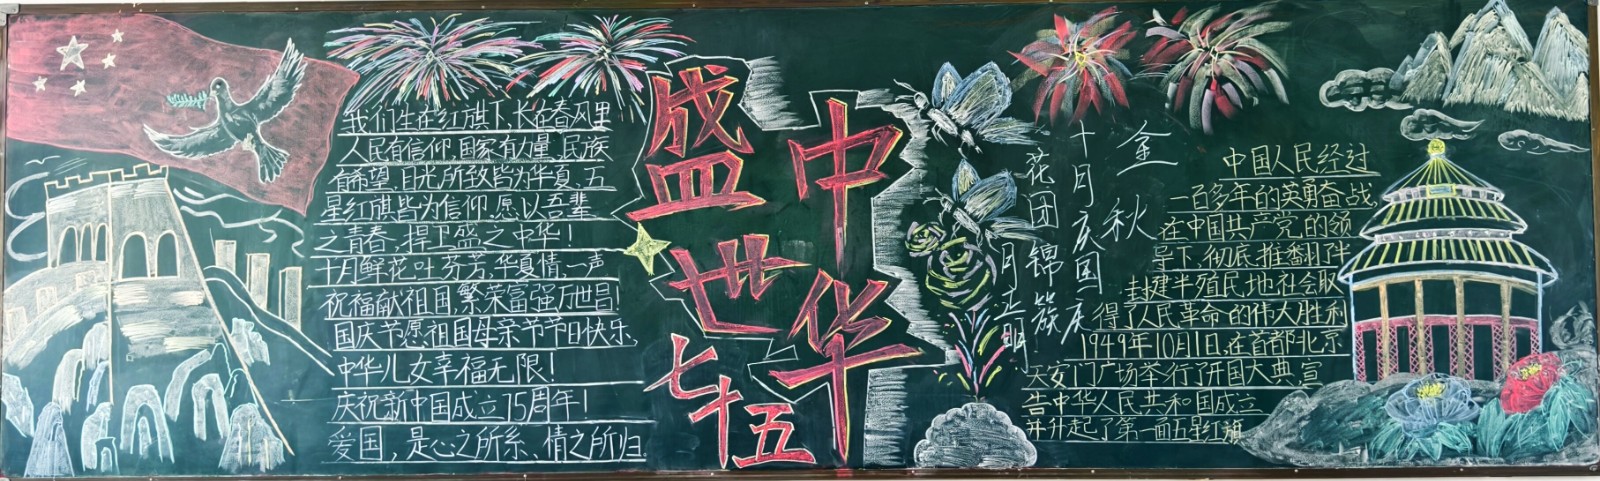 我们生在红旗下,长在春风里
人民有信仰,国家有力量,民族
有希望,目光所致皆为华夏,五
星红旗皆为信仰.愿以吾辈
之青春,捍卫盛之中华!
十月鲜花吐芬芳,华夏情,一声
祝福献祖国,繁荣富强万世昌!
国庆节愿祖国母亲节节日快乐,
中华儿女幸福无限!
庆祝新中国成立75周年!
爱国，是心之所系、情之所归.
盛世
中华
七十五
金秋
十月庆国庆
花团锦簇
月正明
中国人民经过
一百多年的英勇奋战,
在中国共产党的领
导下,彻底推翻了半
封建半殖民地社会取
得了人民革命的伟大胜利
1949年10月1日,在首都北京
天安门广场举行了开国大典,宣
告中华人民共和国成立
并升起了第一面五星红旗